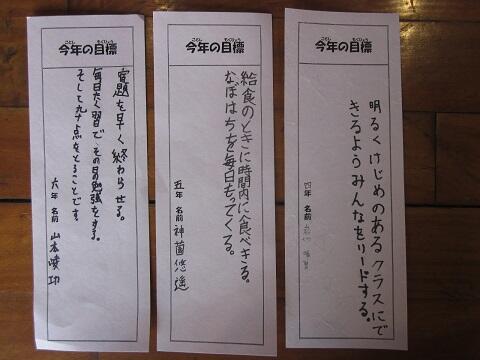 今年の目標
ことし もくひょう
宿題を早く終わらせる。
毎日たく習で、その日の勉強をする。
そして九十点をとることです。
六年 名前 山本崚功
今年の目標
ことし もくひょう
給食のときに時間内に食べきる。
なぼはちちを毎日もってくる。
五年 名前 神薗悠遥
今年の目標
ことし もくひょう
明るくけじめのあるクラスにで
きるようみんなをリードする。
四年 名前